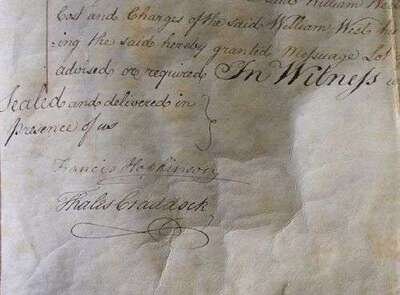 said William West
Cost and Charges of the said William West
ing the said hereby granted Messuage Lot
advised or required In Witness
Sealed and delivered in
presence of us
Francis Hopkinson
Thales Craddock